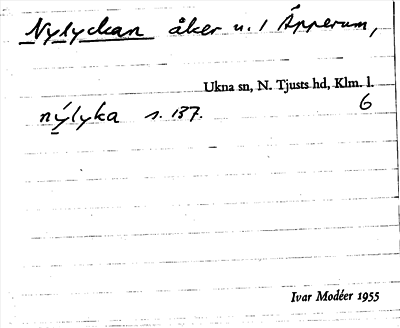 Nylyckan åker u. 1 Äpperum,
Ukna sn, N. Tjusts hd, Klm. l.
nýlyka s. 137. 6
Ivar Modéer 1955